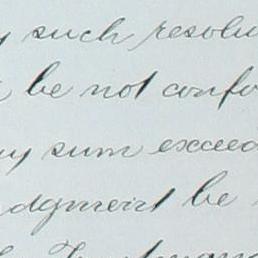 y such resolu
be not confo
ny sum exceed
dgment be